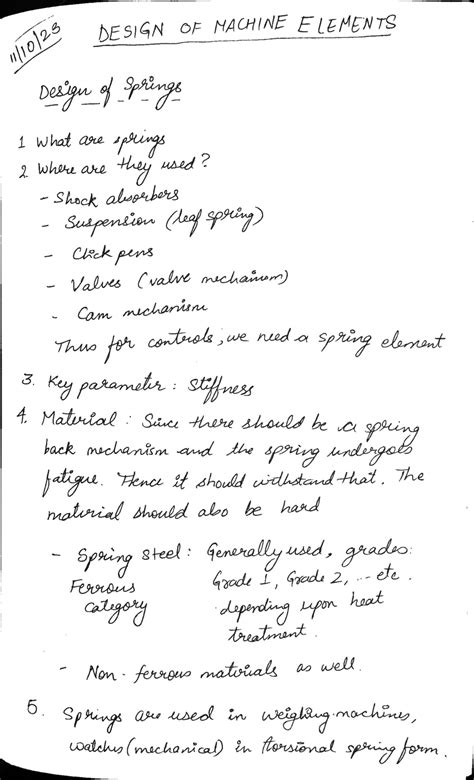 11/10/23
DESIGN OF MACHINE ELEMENTS
Design of Springs
1 What are springs
2. Where are they used?
- Shock absorbers
- Suspension (leaf spring)
- Click pens
- Valves (valve mechanism)
- Cam mechanism
Thus for controls, we need a spring element
3. Key parameter : Stiffness
4. Material : Since there should be a spring
back mechanism and the spring undergoes
fatigue. Hence it should withstand that. The
material should also be hard
- Spring Steel : Generally used, grades:
Ferrous Grade 1, Grade 2, ... etc.
category depending upon heat
treatment.
- Non-ferrous materials as well.
5. Springs are used in weighing machines,
watches (mechanical) in torsional spring form.